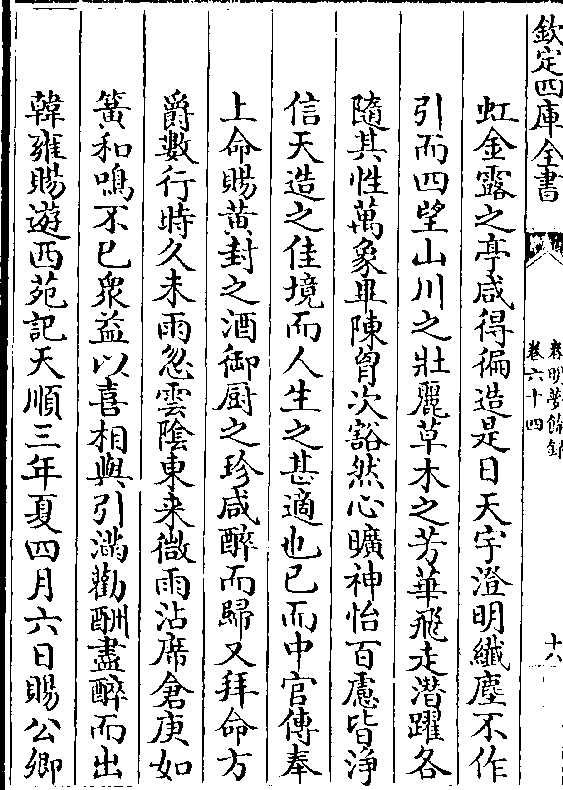 欽定四庫全書
春明夢餘録
卷六十四
十八
虹金露之亭咸得徧造是日天宇澄明纎塵不作
引而四望山川之壯麗草木之芳華飛走潜躍各
隨其性萬象畢陳胷次豁然心曠神怡百慮皆浄
信天造之佳境而人生之甚適也已而中官傳奉
上命賜黄封之酒御厨之珍咸醉而歸又拜命方
爵數行時久未雨忽雲隂東来微雨沾席倉庚如
簧和鳴不已衆益以喜相與引滿勸酬盡醉而出
韓雍賜遊西苑記天順三年夏四月六日賜公卿